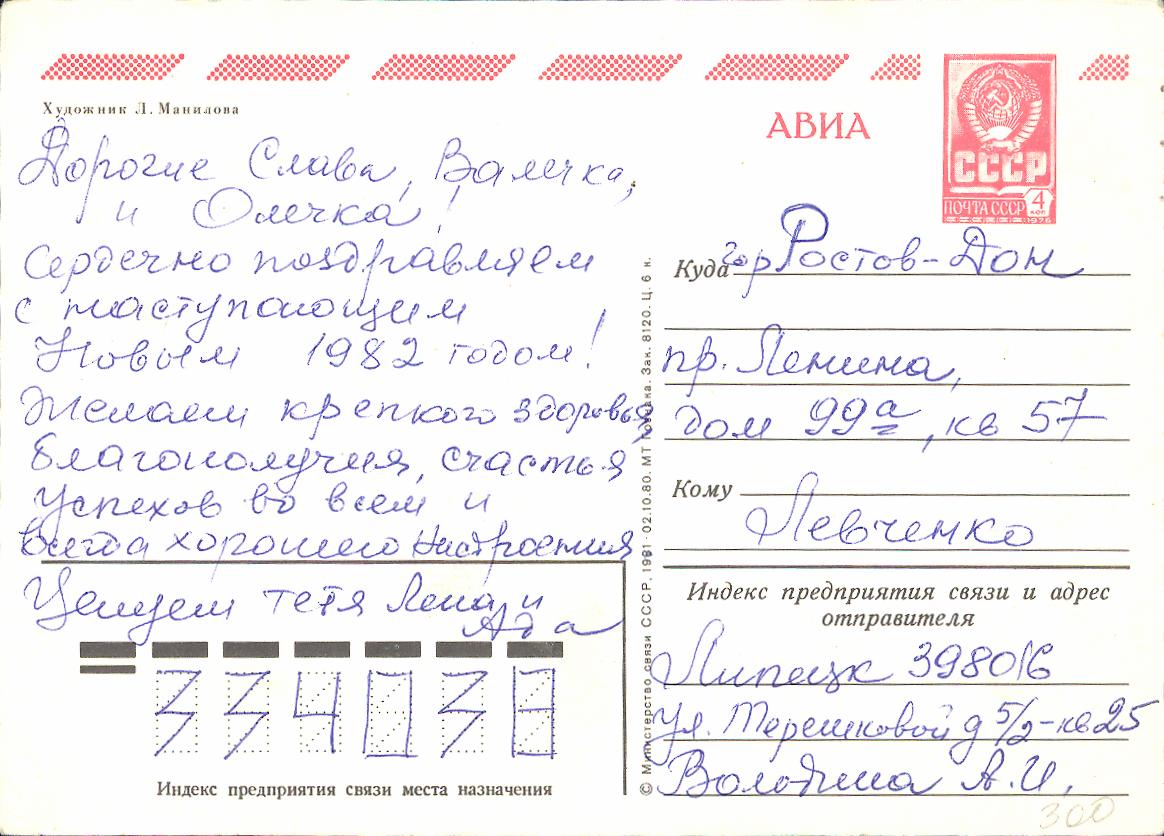 Художник Л. Манилова
АВИА
СССР
ПОЧТА СССР
4
КОП
1976
Дорогие Слава, Валечка,
и Олечка!
Сердечно поздравляем
с наступающим
Новым 1982 годом!
Желаем крепкого здоровья,
благополучия, счастья
успехов во всем и
всегда хорошего настроения
Целуем тетя Лена и
Ада
334038
Индекс предприятия связи места назначения
© Министерство связи СССР, 1981 · 02.10.80. МТ Гознака. Зак. 8120. Ц. 6 к.
Куда гор Ростов-Дон
пр. Ленина,
дом 99а, кв 57
Кому
Левченко
Индекс предприятия связи и адрес
отправителя
Липецк 398016
ул. Терешковой д 5/2-кв 25
Володина А. И.
300